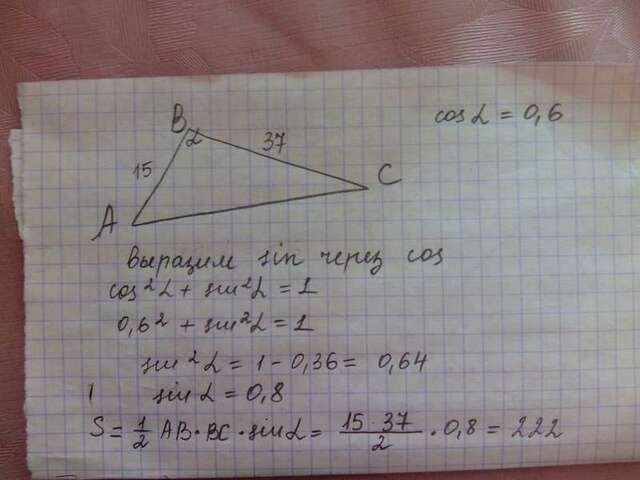 B
α
37
cos α = 0,6
15
C
A
Выразим sin через cos
cos²α + sin²α = 1
0,6² + sin²α = 1
sin²α = 1 - 0,36 = 0,64
sin α = 0,8
S = 1/2 AB · BC · sin α = 15 · 37/2 · 0,8 = 222